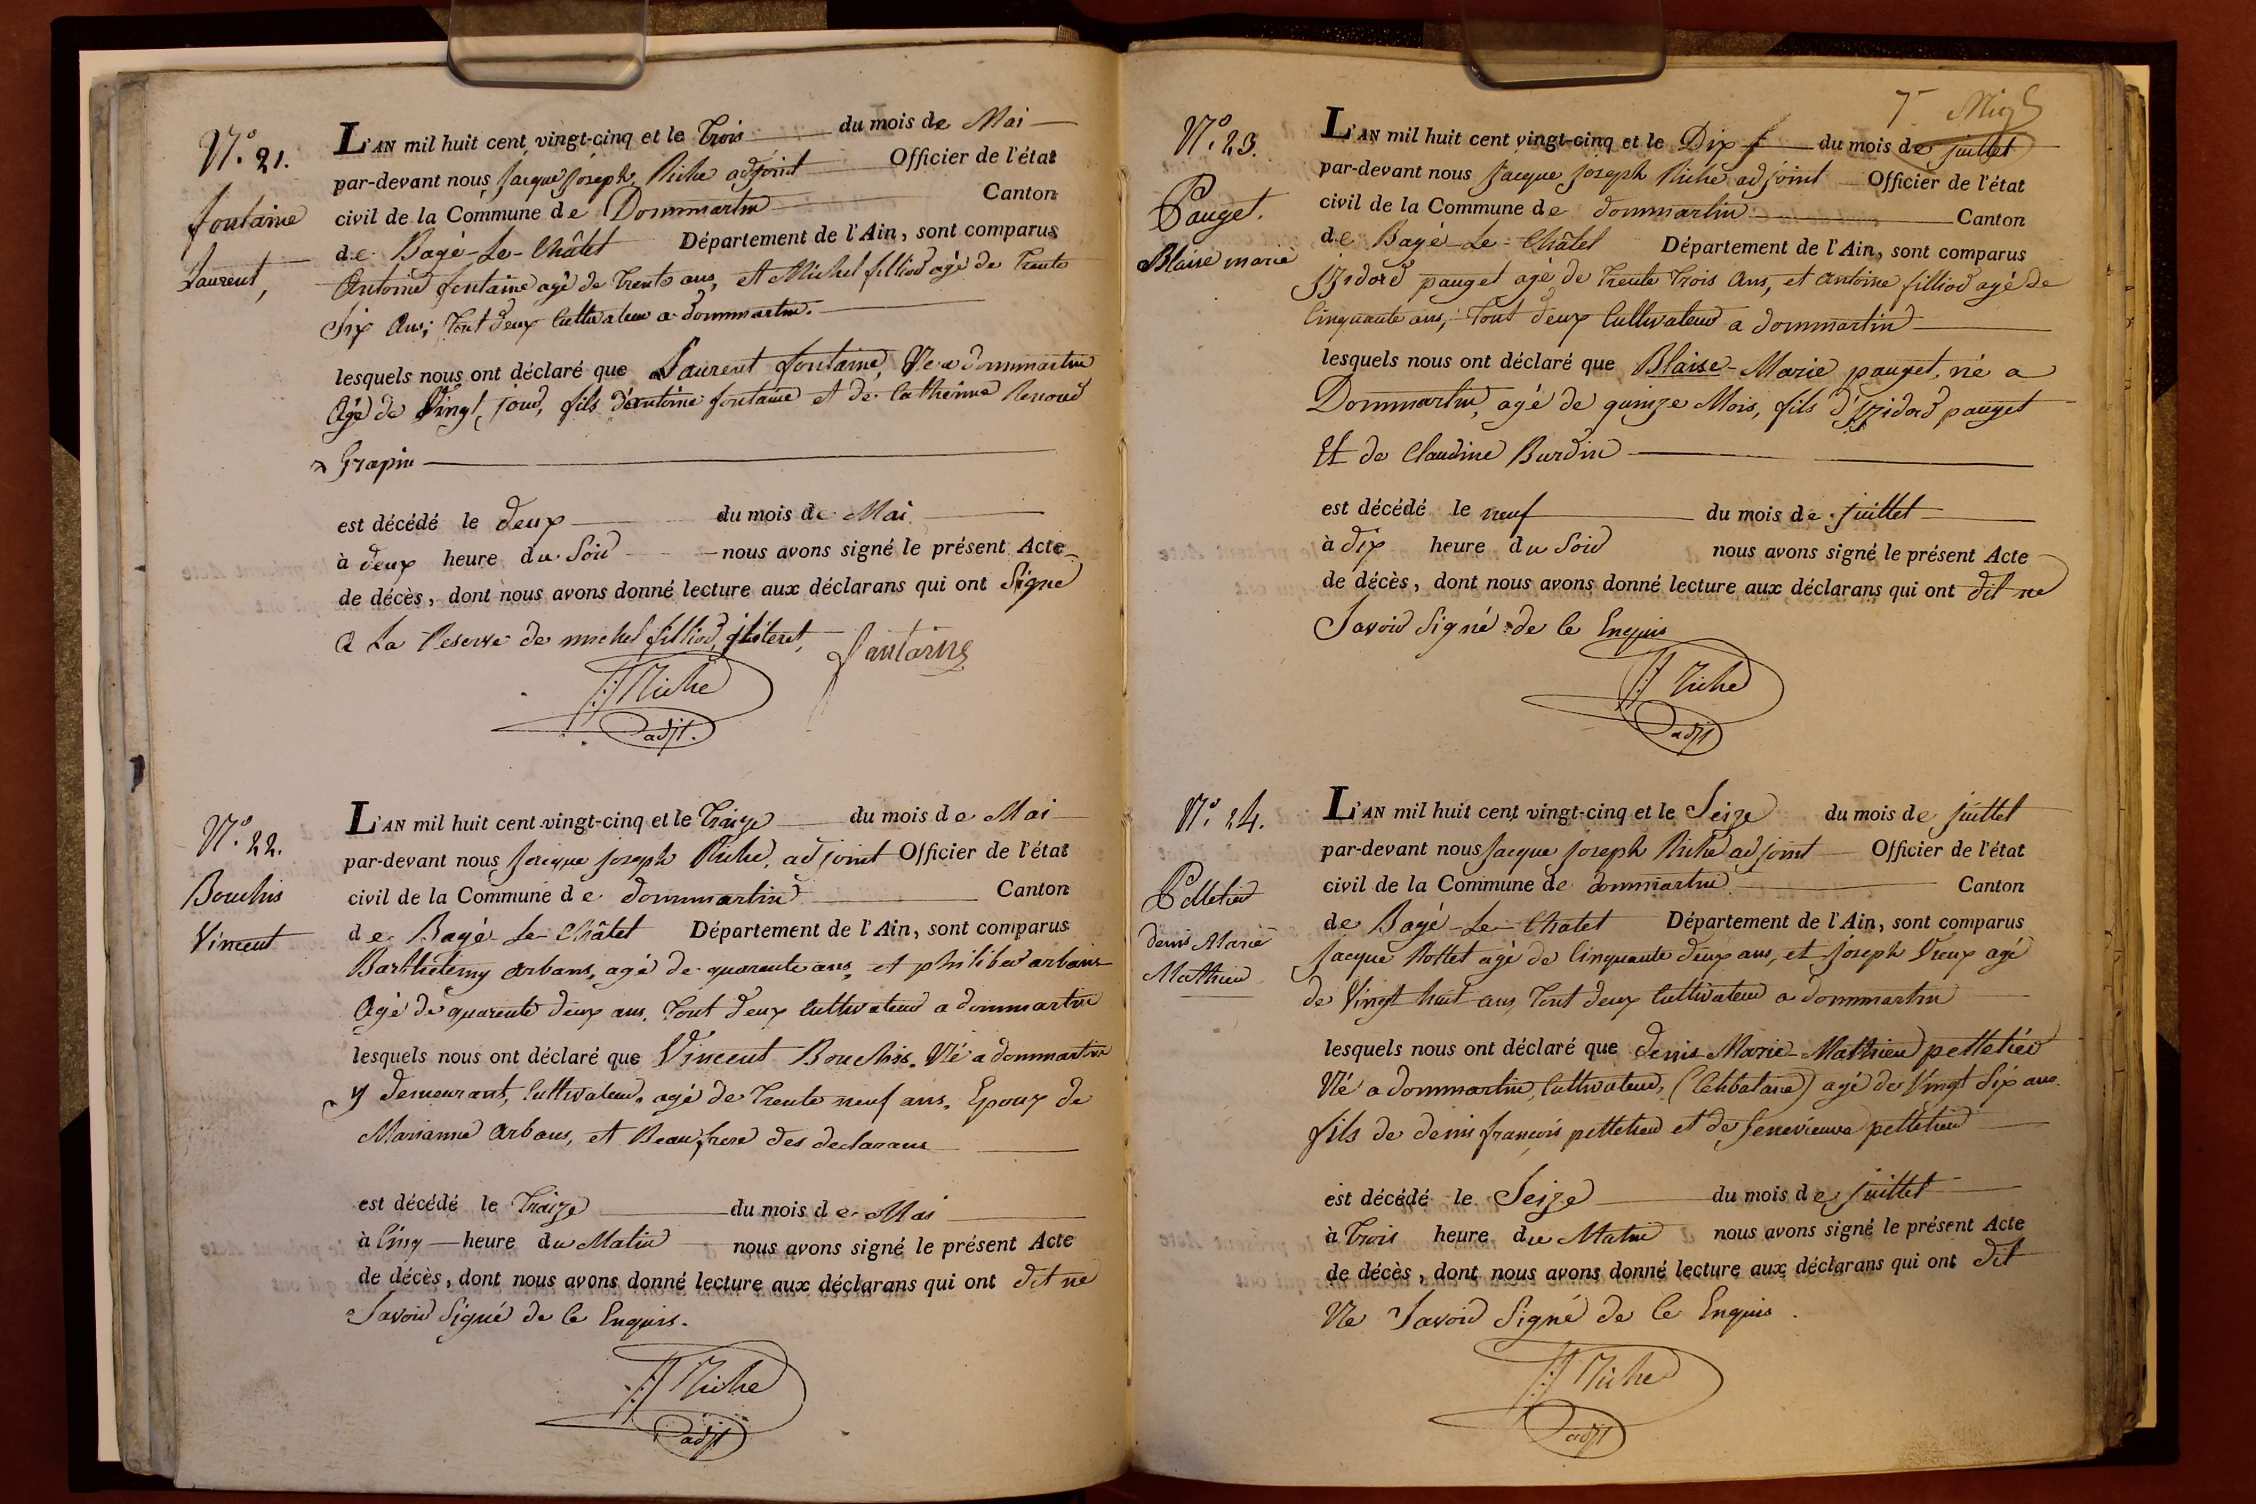 N.° 21.
fontaine
Laurent,
L'AN mil huit cent vingt-cinq et le Trois du mois de Mai
par-devant nous Jacque Joseph Riche adjoint Officier de l'état
civil de la Commune de Dommartin Canton
de Bagé-Le-Châtel Département de l'Ain, sont comparus
Antoine fontaine agé de Trente ans, et Michel filliod agé de Trente
Six Ans; Tout deux Cultivateur a dommartin.
lesquels nous ont déclaré que Laurent fontaine, Né a dommartin
Agé de Vingt jour, fils d'antoine fontaine et de Cathérine Renoud
Grapin
est décédé le deux du mois de Mai
à deux heure du Soir nous avons signé le présent Acte
de décès, dont nous avons donné lecture aux déclarans qui ont Signé
a La Reserve de michel filliod, illiteret,
fontaine
JJ Riche
adjt.
N.° 22.
Bouchis
Vincent
L'AN mil huit cent vingt-cinq et le Traize du mois de Mai
par-devant nous Jacque joseph Riche, adjoint Officier de l'état
civil de la Commune de dommartin Canton
de Bagé-Le-Châtel Département de l'Ain, sont comparus
Barthelemy arbans, agé de quarente ans, et philiber arbans
Agé de quarente deux ans, Tout deux Cultivateur a dommartin
lesquels nous ont déclaré que Vincent Bouchis. Né a dommartin
y demeurant, Cultivateur, agé de Trente neuf ans, Epoux de
Marianne arbans, et Beaufrere des declarans
est décédé le Traize du mois de Mai
à Cinq heure du Matin nous avons signé le présent Acte
de décès, dont nous avons donné lecture aux déclarans qui ont dit ne
Savoir Signé de Ce Enquis.
JJ Riche
adjt
7
N.° 23.
Pauget.
Blaise marie
L'AN mil huit cent vingt-cinq et le Dix du mois de juillet
par-devant nous Jacque joseph Riche adjoint Officier de l'état
civil de la Commune de dommartin Canton
de Bagé-Le-Châtel Département de l'Ain, sont comparus
izidord pauget agé de Trente Trois Ans, et antoine filliod agé de
Cinquante ans, Tout deux Cultivateur a dommartin
lesquels nous ont déclaré que Blaise-Marie pauget, né a
Dommartin, agé de quinze Mois, fils d'izidord pauget
Et de Claudine Burdin
est décédé le neuf du mois de juillet
à dix heure du Soir nous avons signé le présent Acte
de décès, dont nous avons donné lecture aux déclarans qui ont dit ne
Savoir Signé de Ce Enquis
JJ Riche
adjt
N.° 24.
Pelletier
denis Marie
Mathieu
L'AN mil huit cent vingt-cinq et le Seize du mois de juillet
par-devant nous Jacque joseph Riche adjoint Officier de l'état
civil de la Commune de dommartin Canton
de Bagé-Le-Chatel Département de l'Ain, sont comparus
Jacque Rottet agé de Cinquante deux ans, et joseph Vieux agé
de Vingt huit ans, Tout deux Cultivateur a dommartin
lesquels nous ont déclaré que denis-Marie-Mathieu pelletier
Né a dommartin, Cultivateur, (Celibataire) agé de Vingt Six ans.
fils de denis françois pelletier et de Jenevieuve pelletier
est décédé le Seize du mois de juillet
à Trois heure du Matin nous avons signé le présent Acte
de décès, dont nous avons donné lecture aux déclarans qui ont dit
Ne Savoir Signé de Ce Enquis.
JJ Riche
adjt